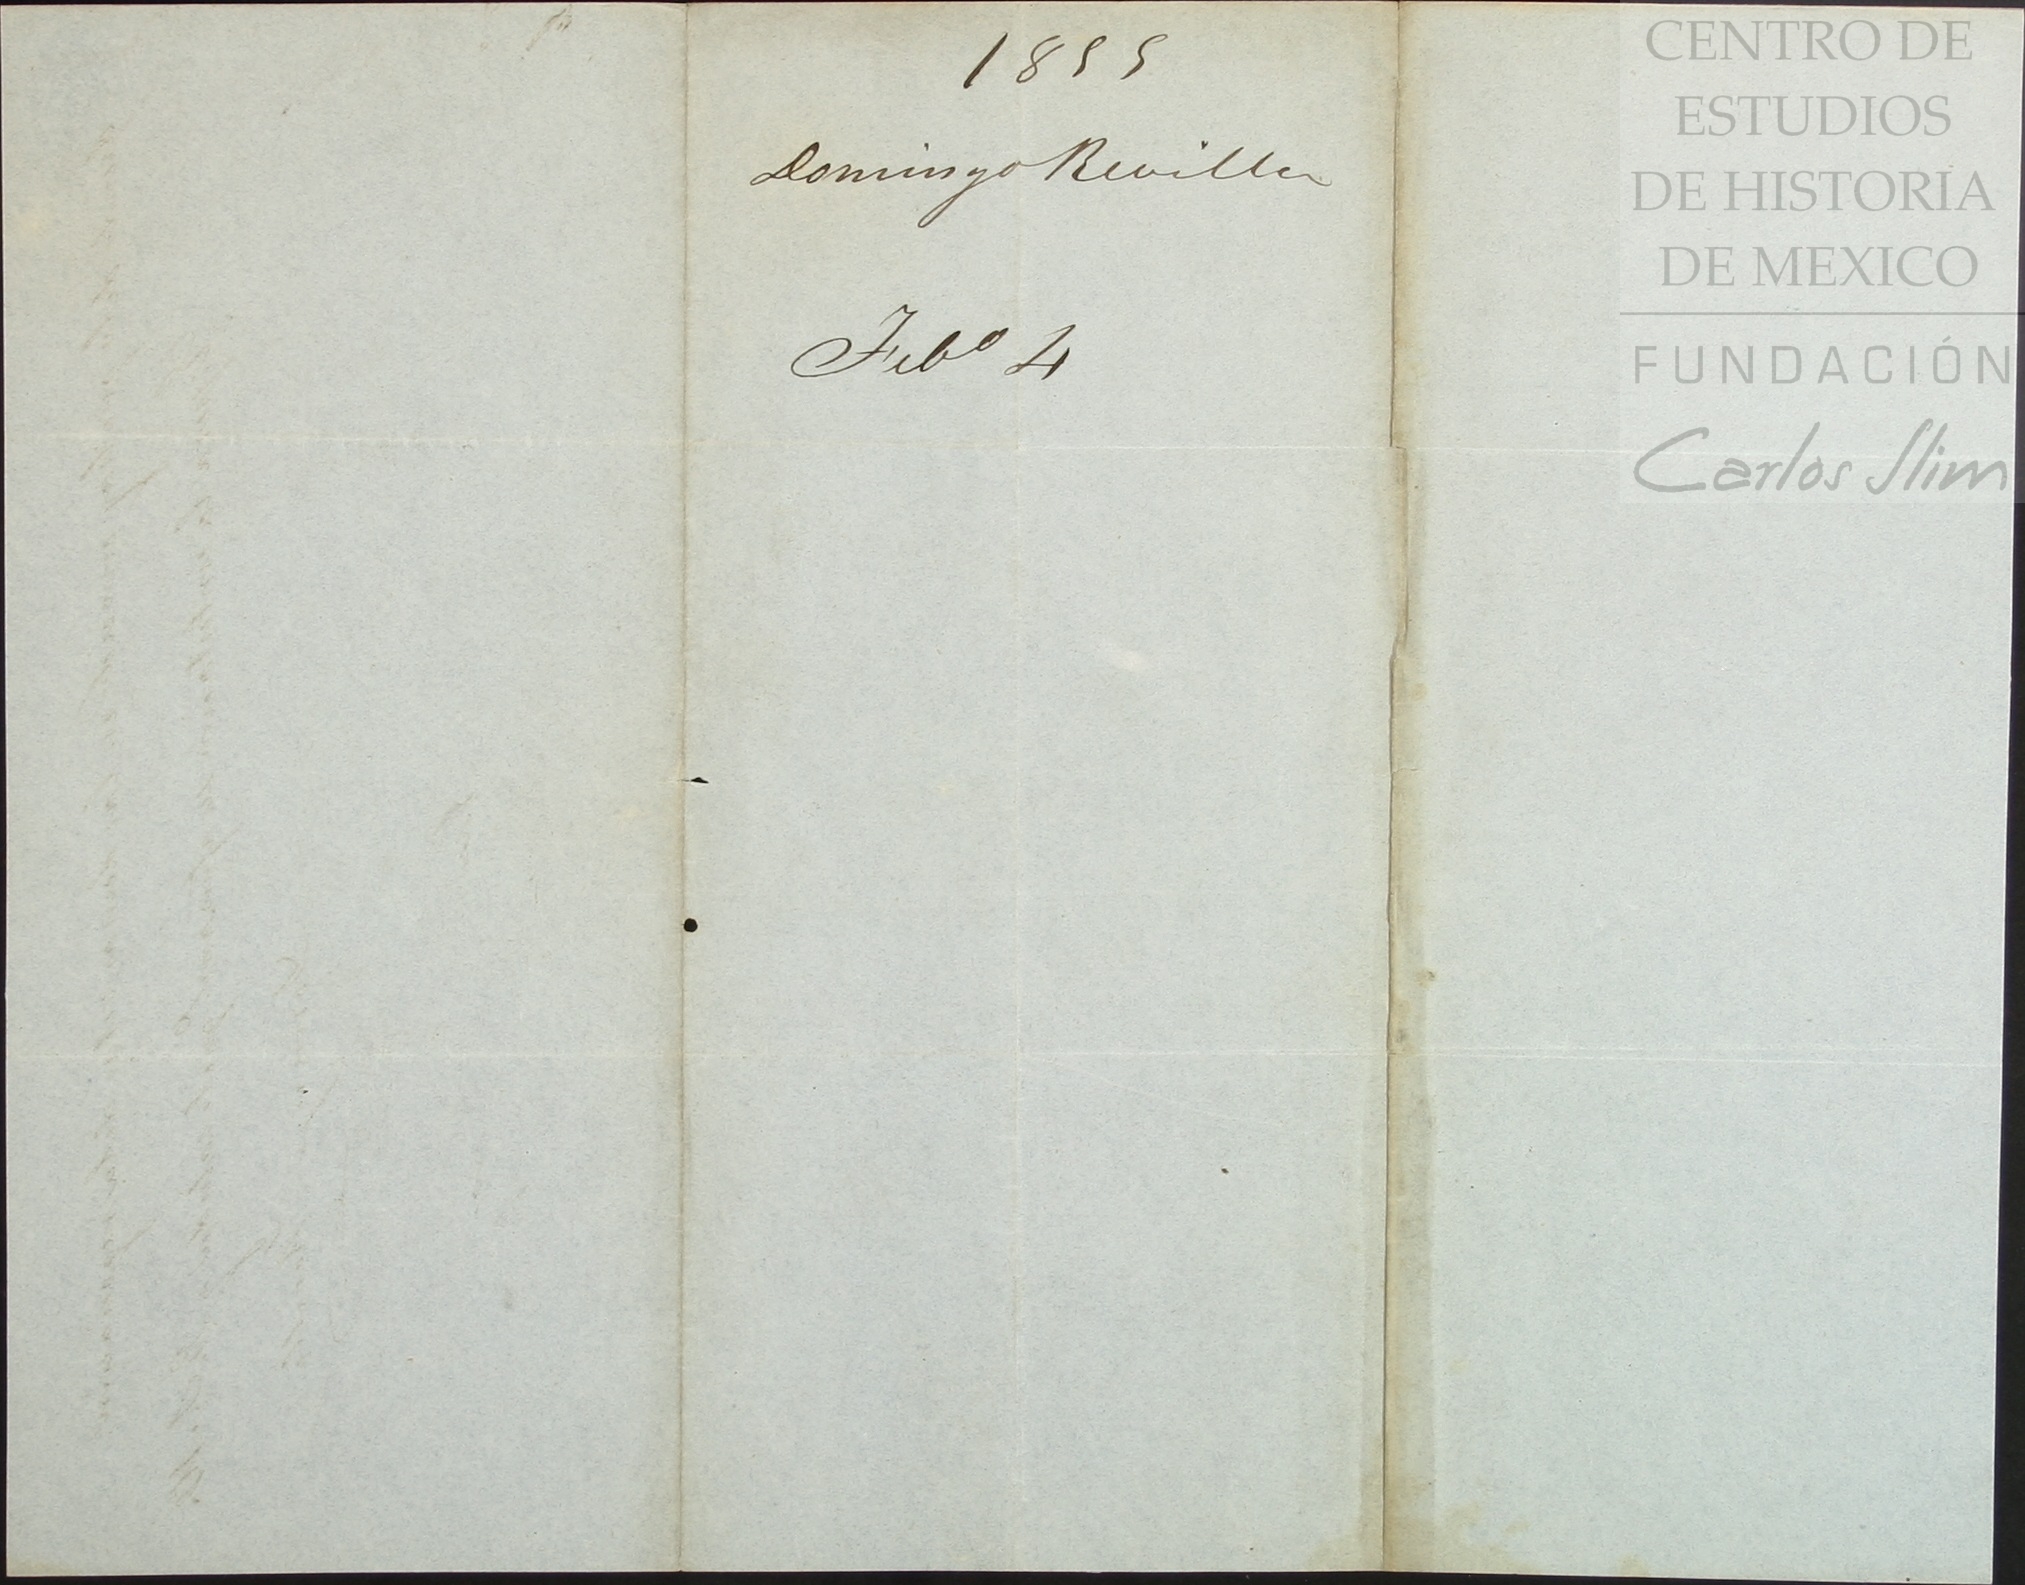 1855
Domingo Revilla
Febº 4
CENTRO DE
ESTUDIOS
DE HISTORIA
DE MEXICO
FUNDACIÓN
Carlos Slim